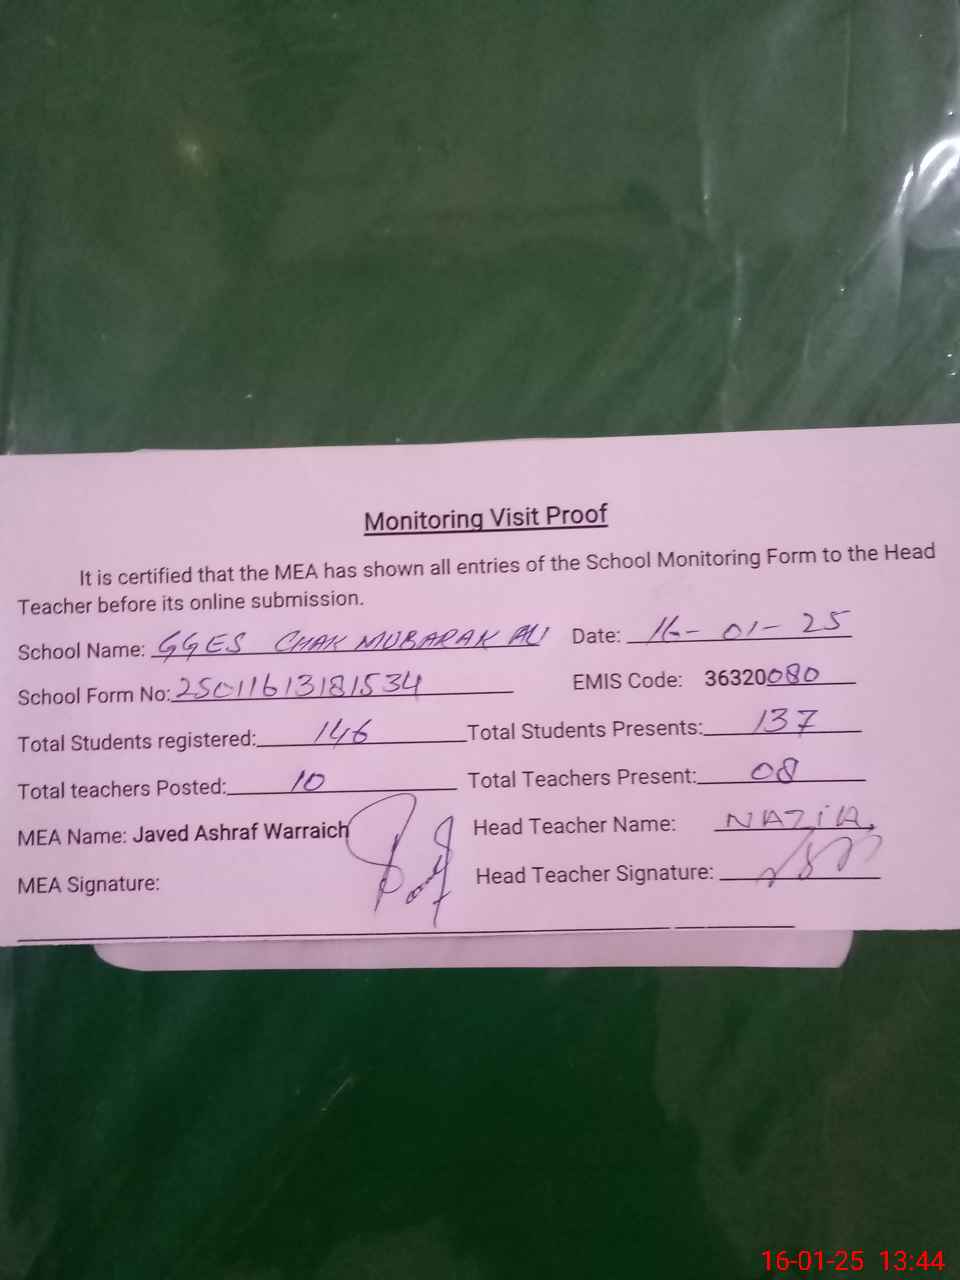 Monitoring Visit Proof
It is certified that the MEA has shown all entries of the School Monitoring Form to the Head
Teacher before its online submission.
School Name: GGES CHAK MUBARAK ALI Date: 16-01-25
School Form No: 25011613181534 EMIS Code: 36320080
Total Students registered: 146 Total Students Presents: 137
Total teachers Posted: 10 Total Teachers Present: 08
MEA Name: Javed Ashraf Warraich Head Teacher Name: NAZiA
MEA Signature: Head Teacher Signature:
16-01-25 13:44